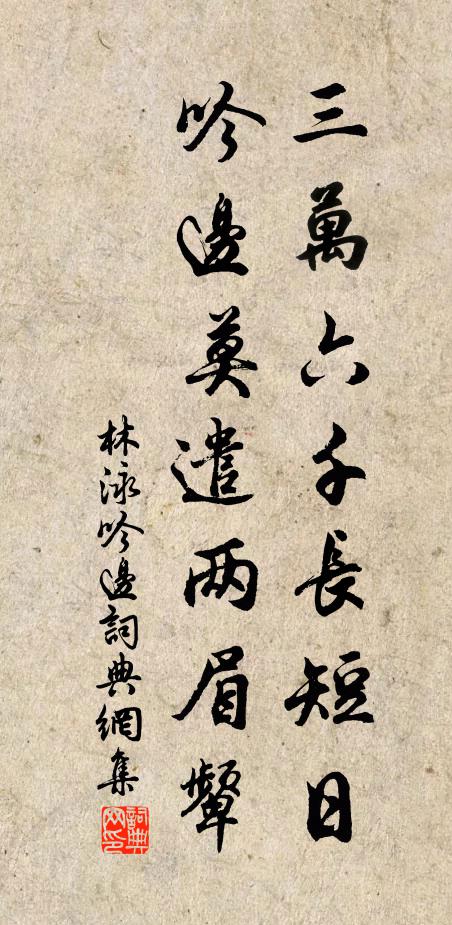 三萬六千長短日
吟邊莫遣兩眉顰
林泳吟邊詞典網集
詞典
网印